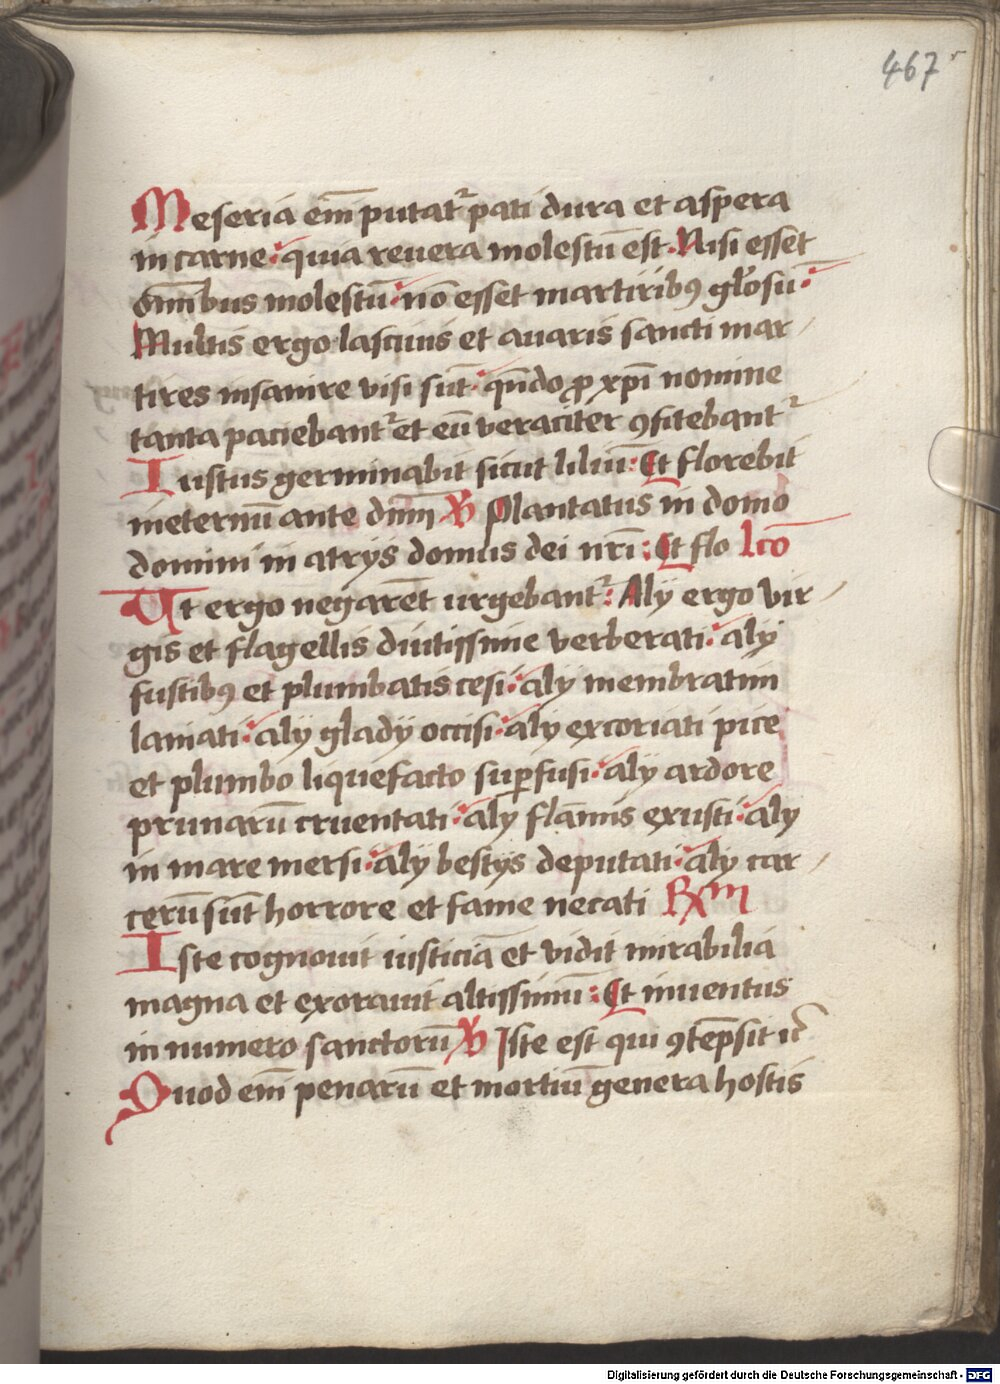 467r
Meseria em̄ putat᷑ pati dura et aspera
in carne quia revera molestū est. Nisi esset
om̄ibus molestū nō esset martiribꝯ glōsū
Multis ergo lascivis et avaris sancti mar
tires insanire visi sūt qn̄do ꝓ xpī nomine
tanta paciebant᷑ et eū veraciter ꝯfitebant᷑
Iustus germinabit sicut liliū: Et florebit
ineternū ante dn̄m ℣ Plantatus in domo
domini in atrijs domus dei nr̄i: Et flo lcō
Ut ergo negarēt urgebant᷑: Alij ergo vir
gis et flagellis diutissime verberati alij
fustibꝯ et plumbatis cesi alij membratim
laniati alij gladij occisi alij excoriati pice
et plumbo liquefacto suꝑfusi alij ardore
prunarū cruentati alij flāmis exusti alij
in mare mersi alij bestijs deputati alij car
cerū sūt horrore et fame necati Rm̄
Iste cognovit iusticiā et vidit mirabilia
magna et exoravit altissimū: Et inventus
in numero sanctorū ℣ Iste est qui ꝯtēpsit
Quod em̄ penarū et mortiū genera hostis
Digitalisierung gefördert durch die Deutsche Forschungsgemeinschaft - DFG